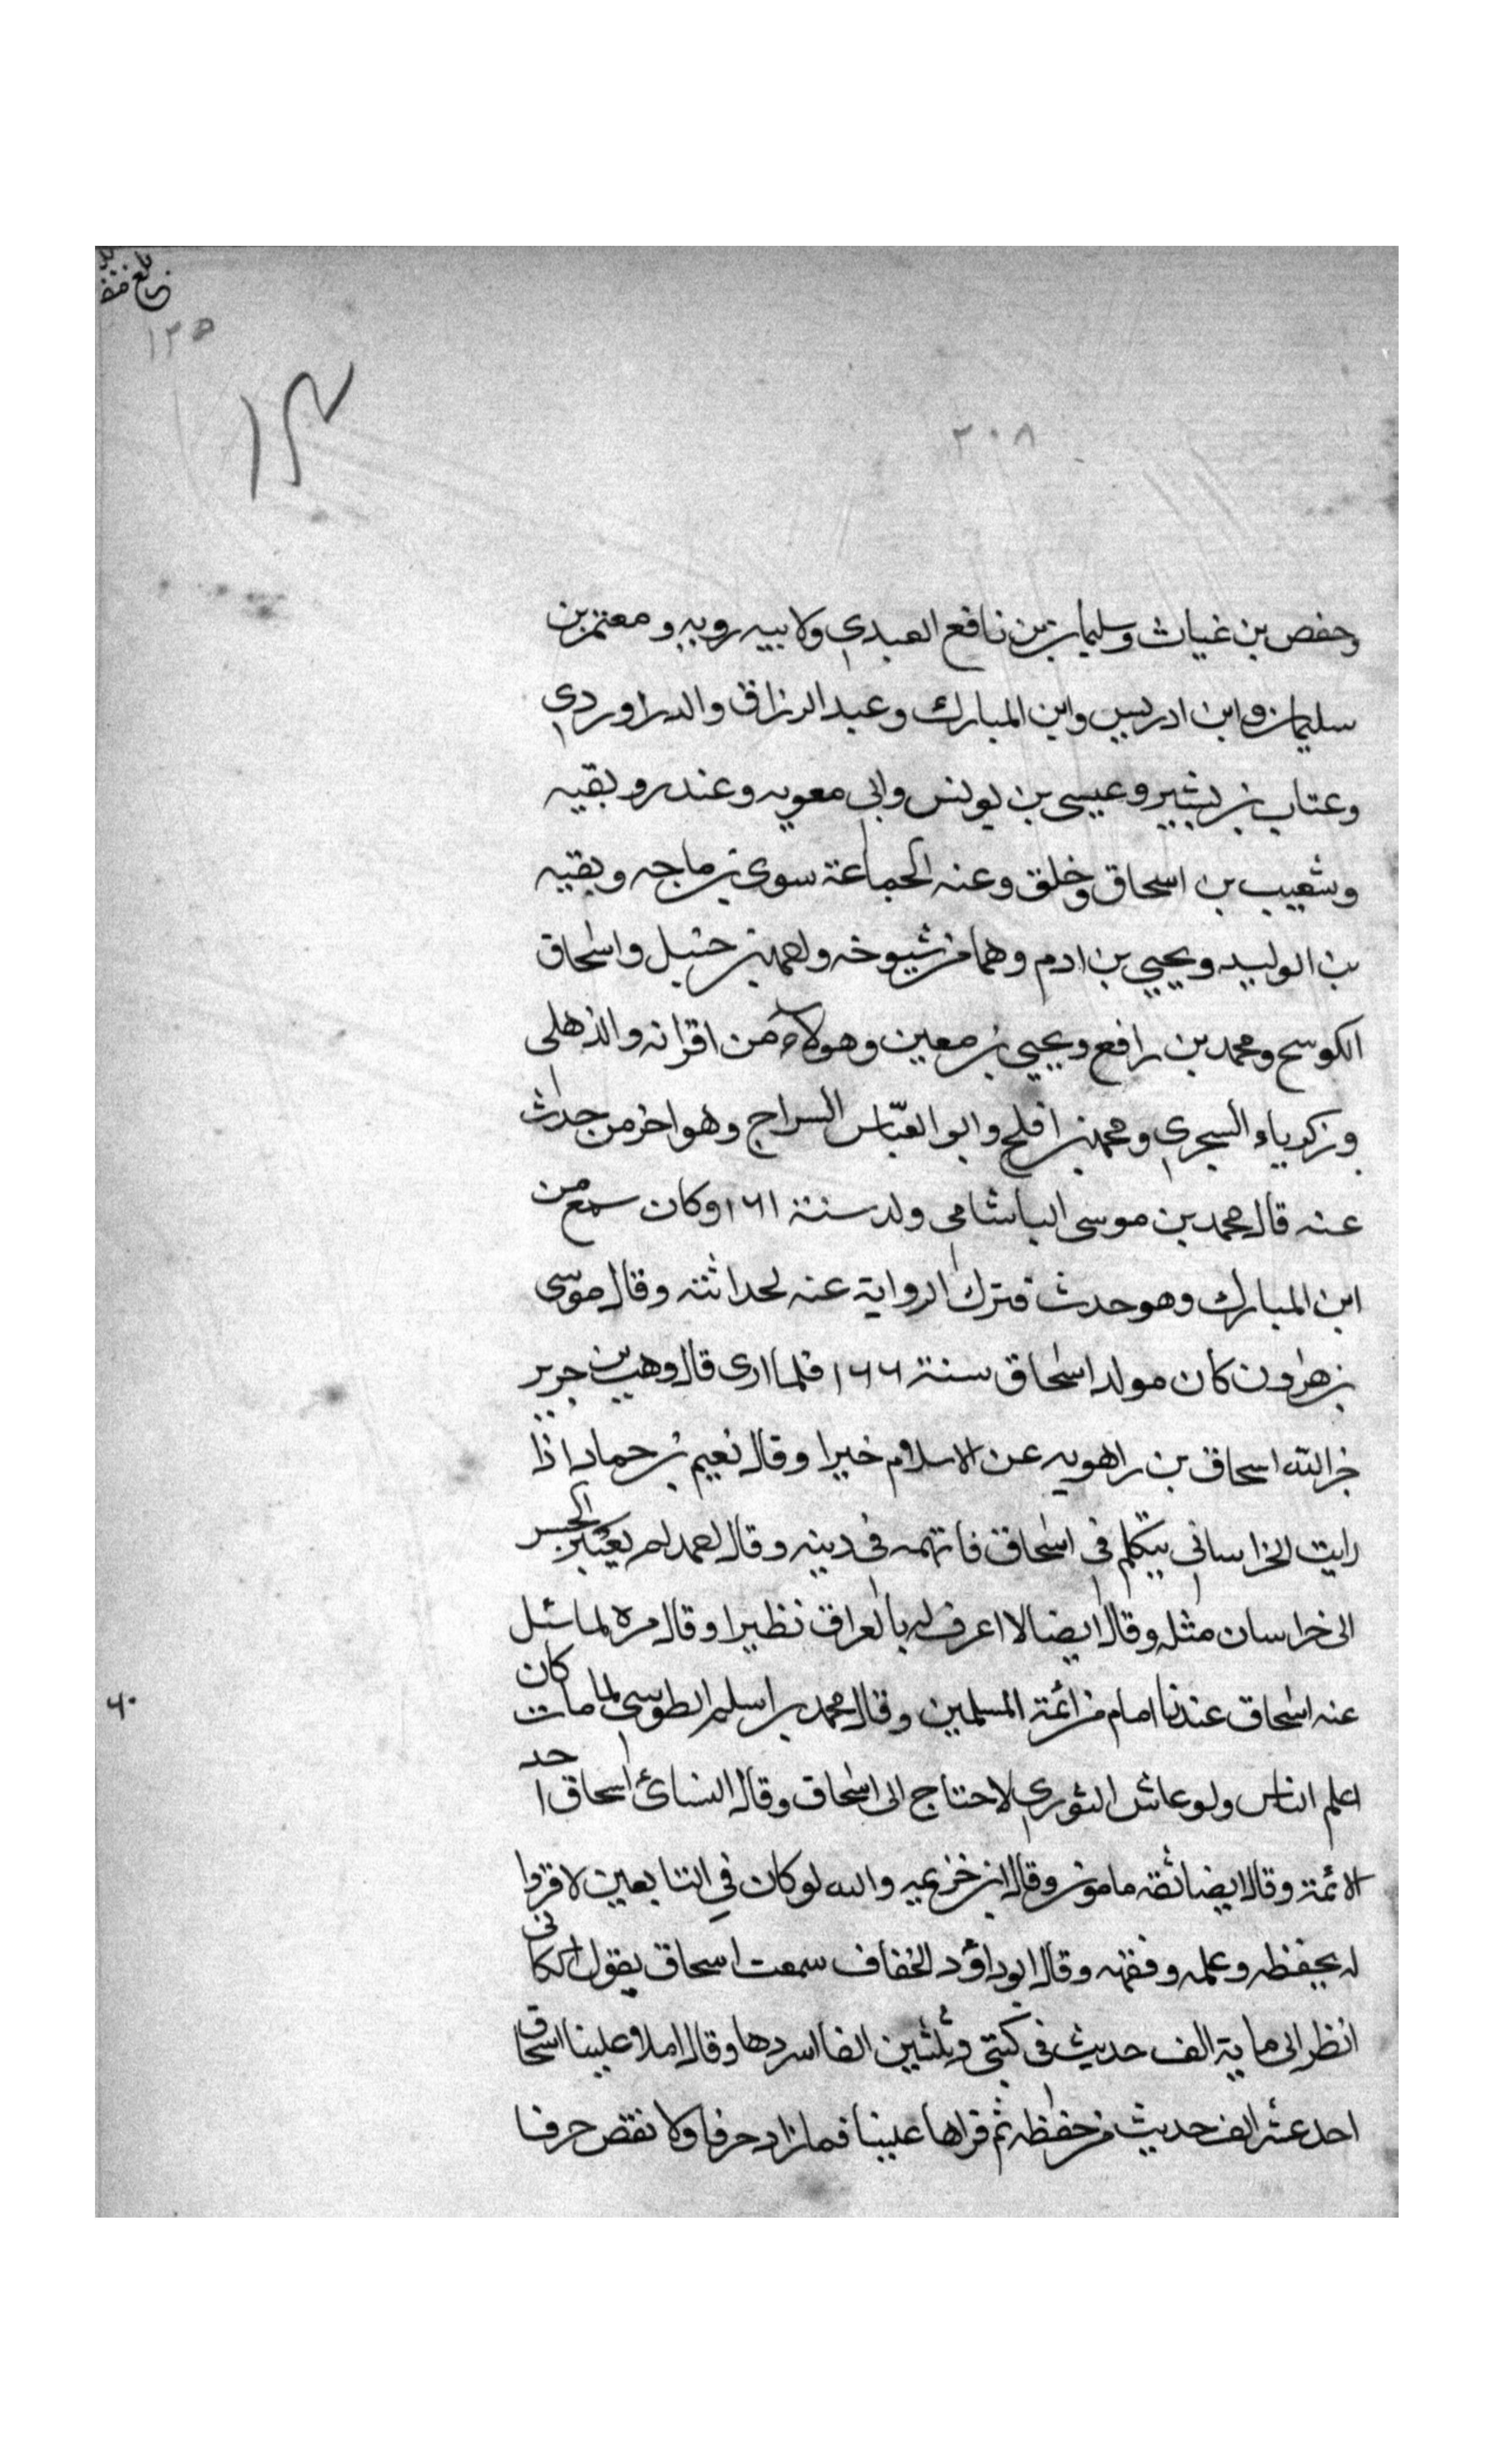 ١٢٥
٢٠٨
وحفص بن غياث وسليمان بن نافع العبدي ولابيه رويه ومعتمر بن
سليمان وابن ادريس وابن المبارك وعبد الرزاق والدراوردي
وعتاب بن بشير وعيسى بن يونس وابي معويه وغندر وبقيه
وشعيب بن اسحاق وخلق وعنه الجماعة سوى بن ماجه وبقيه
بن الوليد ويحيي بن ادم وهما من شيوخه واحمد بن حنبل واسحاق
الكوسج ومحمد بن رافع ويحيي بن معين وهولاء من اقرانه والذهلى
وزكرياء السجزي ومحمد بن افلح وابو العبّاس السراج وهو اخر من حدث
عنه قال محمد بن موسى الباشامى ولد سنة ١٦١ وكان سمع من
ابن المبارك وهو حدث فترك الرواية عنه لحداثته وقال موسى
بن هارون كان مولد اسحاق سنة ١٦٦ فلما ارى قال وهب بن جرير
جزا الله اسحاق بن راهويه عن الاسلام خيرا وقال نعيم بن حماد اذا
رايت الخراسانى يتكلم فى اسحاق فاتهمه فى دينه وقال احمد لم يعبر الجسر
الى خراسان مثله وقال ايضا لا اعرف له بالعراق نظيرا وقال مرة لما سئل
عنه اسحاق عندنا امام من ائمة المسلمين وقال محمد بن اسلم الطوسى لما مات كان
اعلم الناس ولو عاش الثوري لاحتاج الى اسحاق وقال النسائ اسحاق احد
الائمة وقال ايضا ثقه مامون وقال ابن خزيمه والله لو كان في التابعين لاقروا
له بحفظه وعلمه وفقهه وقال ابو داؤد الخفاف سمعت اسحاق يقول لكانى
انظر الى ماية الف حديث فى كتبي وثلثين الفا اسردها وقال املا علينا اسحاق
احد عشر الف حديث من حفظه ثم قراها علينا فما زاد حرفا ولا نقص حرفا